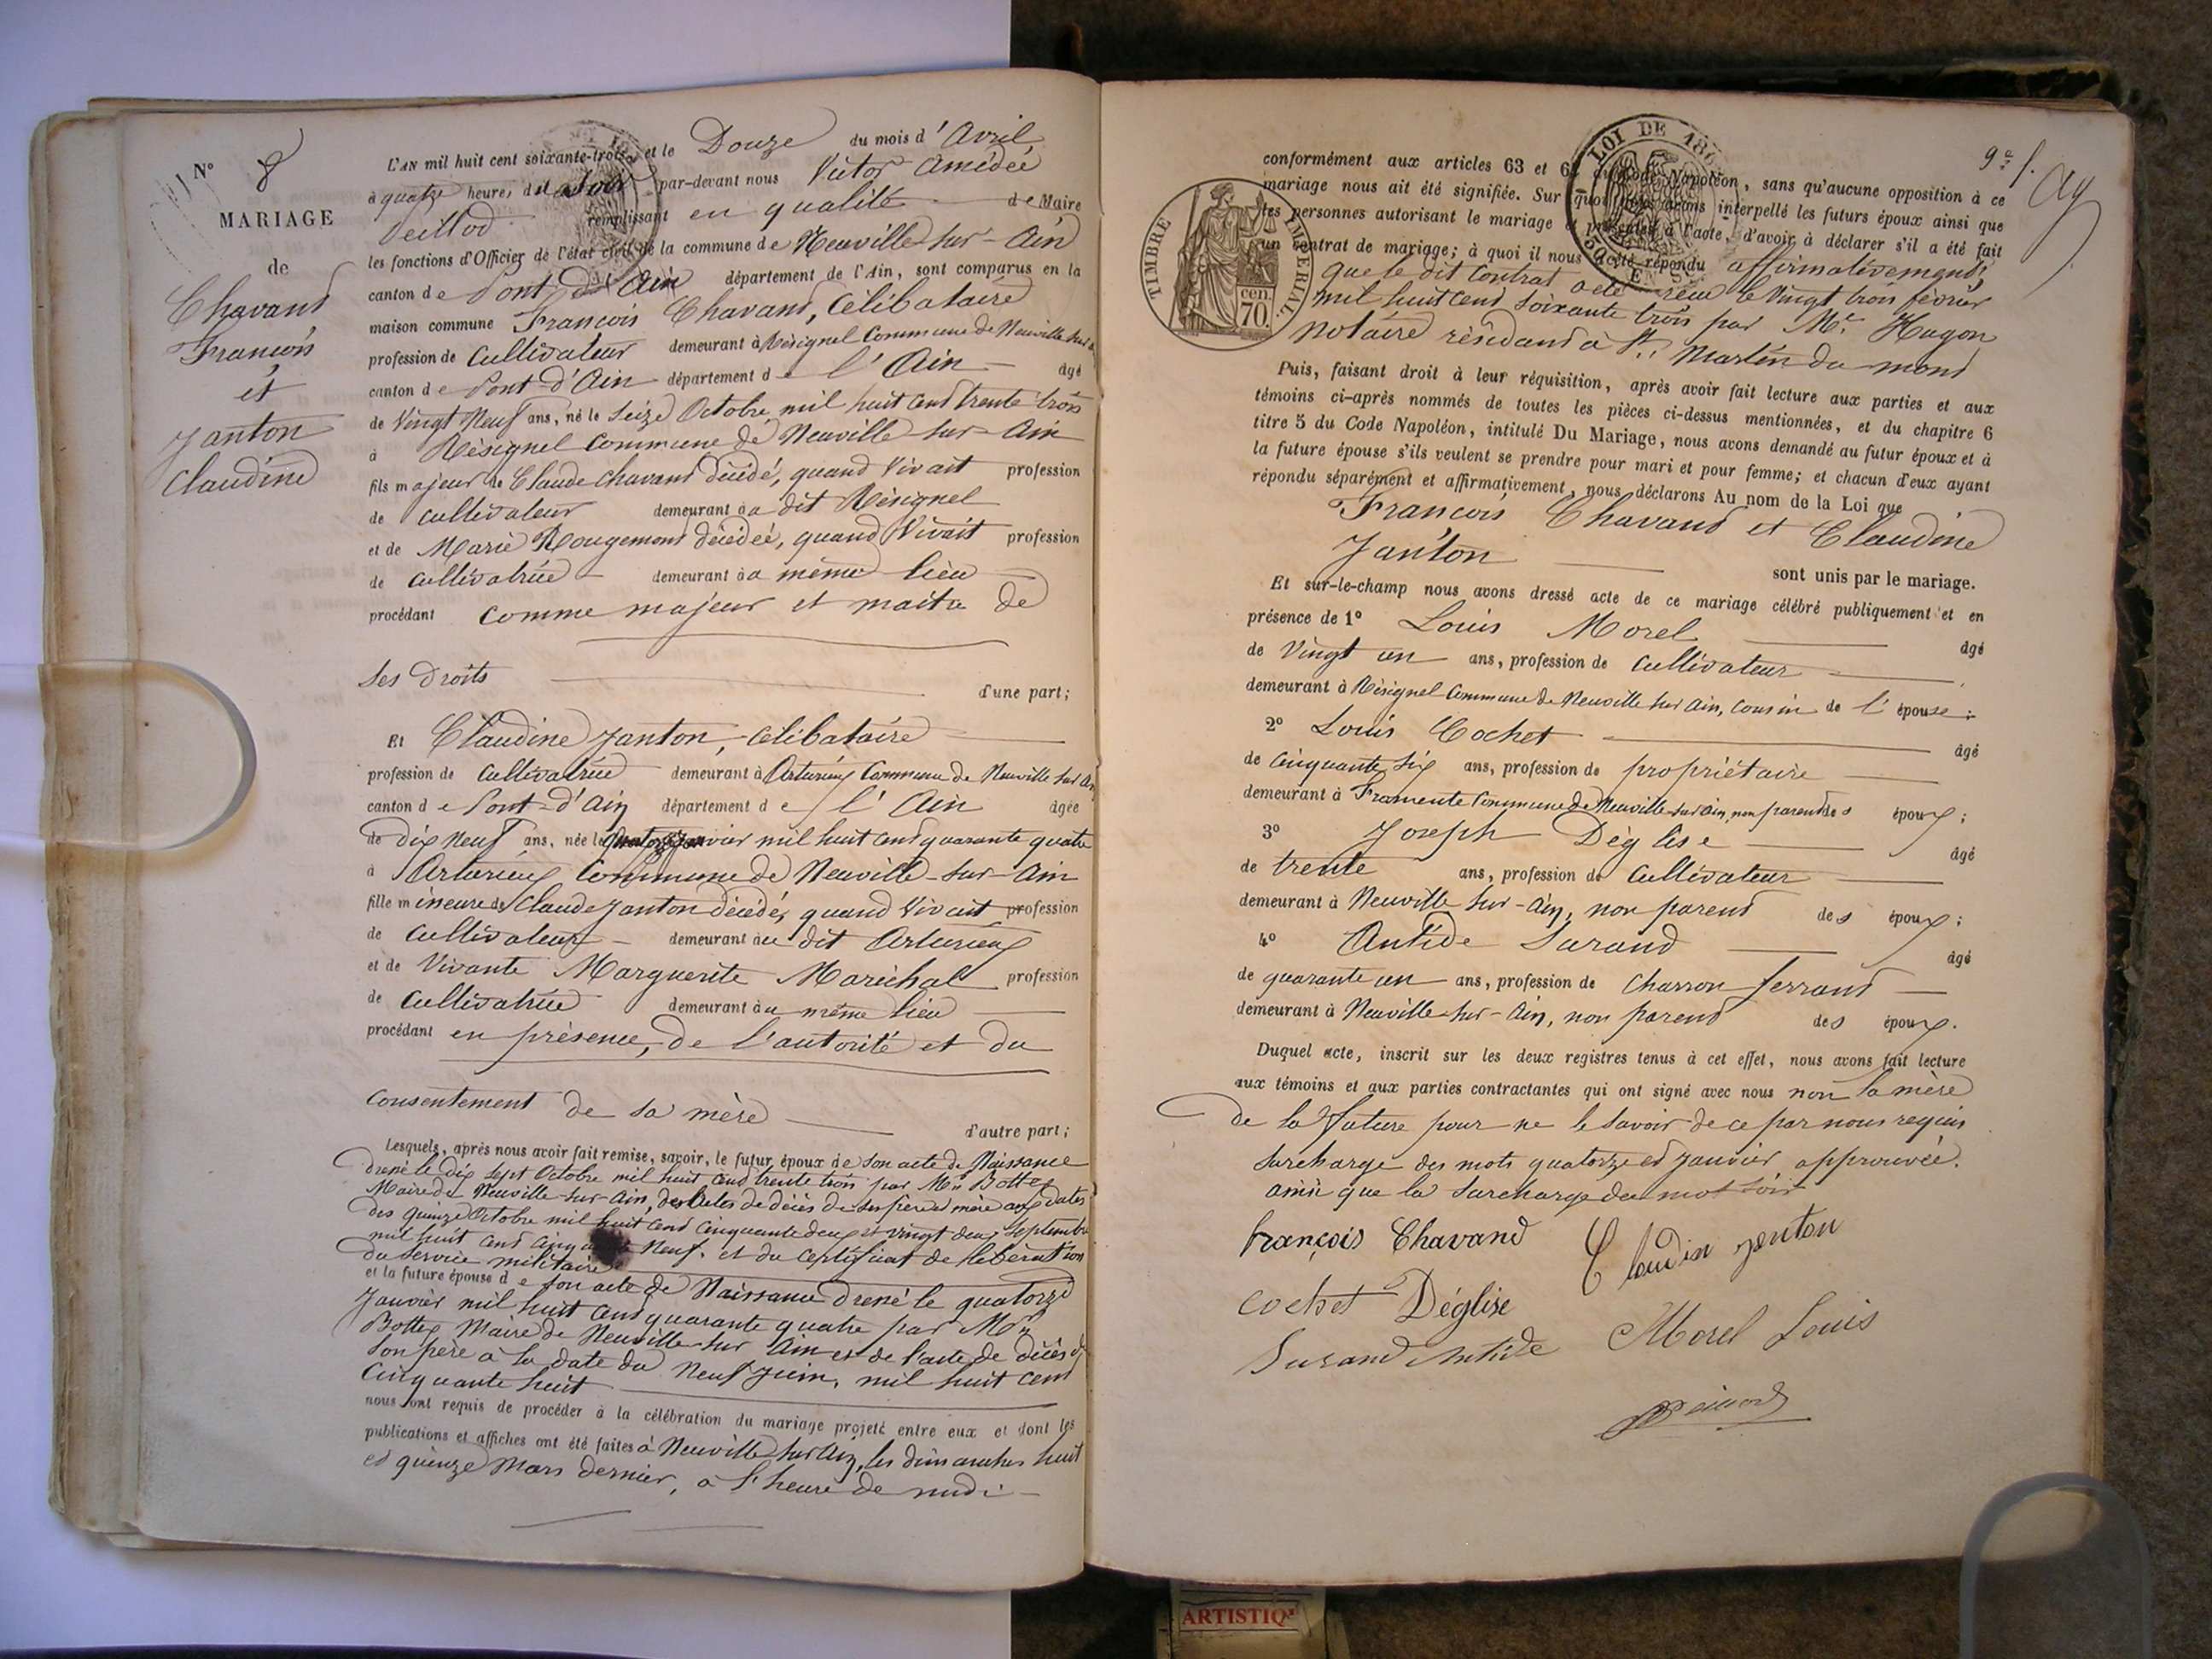 N° 8
MARIAGE
de
Chavand
François
et
Janton
Claudine
L'AN mil huit cent soixante-trois, et le Douze du mois d'Avril
à quatre heures du soir par-devant nous Victor Amédée
Peillod remplissant en qualité de Maire
les fonctions d'Officier de l'état civil de la commune de Neuville-sur-Ain
canton de Pont d'Ain département de l'Ain, sont comparus en la
maison commune François Chavand, Célibataire
profession de Cultivateur demeurant à Résignel Commune de Neuville sur
canton de Pont-d'Ain département de l'Ain âgé
de Vingt Neuf ans, né le Seize Octobre mil huit cent trente trois
à Résignel Commune de Neuville-sur-Ain
fils majeur de Claude Chavand décédé, quand Vivait profession
de cultivateur demeurant au dit Résignel
et de Marie Rougemont décédée, quand Vivait profession
de cultivatrice demeurant au même lieu
procédant comme majeur et maitre de
ses droits d'une part;
Et Claudine Janton, célibataire
profession de cultivatrice demeurant à Arturieux Commune de Neuville sur Ain
canton de Pont-d'Ain département de l'Ain âgée
de dix neuf ans, née le quatorze janvier mil huit cent quarante quatre
à Arturieux Commune de Neuville-sur-Ain
fille mineure de Claude Janton décédé, quand Vivait profession
de Cultivateur demeurant au dit Arturieux
et de Vivante Marguerite Maréchal profession
de Cultivatrice demeurant au même lieu
procédant en présence, de l'autorité et du
consentement de sa mère d'autre part;
Lesquels, après nous avoir fait remise, savoir, le futur époux de son acte de Naissance
dressé le dix sept Octobre mil huit cent trente trois par Mr Bottex
Maire de Neuville-sur-Ain, des actes de décès de ses père et mère aux dates
des quinze Octobre mil huit cent cinquante deux et vingt deux Septembre
mil huit cent Neuf. et du certificat de libération
du service militaire
et la future épouse de son acte de Naissance dressé le quatorze
Janvier mil huit cent quarante quatre par Mr
Bottex Maire de Neuville-sur Ain et de l'acte de décès de
son père à la date du Neuf Juin, mil huit cent
Cinquante huit
nous ont requis de procéder à la célébration du mariage projeté entre eux et dont les
publications et affiches ont été faites à Neuville sur Ain, les dimanches huit
et quinze Mars dernier, à l'heure de midi
9e f.
TIMBRE IMPÉRIAL
70 cen.
LOI DE
50 CEN
conformément aux articles 63 et du Code Napoléon, sans qu'aucune opposition à ce
mariage nous ait été signifiée. Sur quoi nous avons interpellé les futurs époux ainsi que
les personnes autorisant le mariage et présentes à l'acte, d'avoir à déclarer s'il a été fait
un contrat de mariage; à quoi il nous a été répondu affirmativement,
que le dit Contrat a été reçu le Vingt trois février
mil huit cent soixante trois par Me Hugon
notaire résidant à St Martin du mont
Puis, faisant droit à leur réquisition, après avoir fait lecture aux parties et aux
témoins ci-après nommés de toutes les pièces ci-dessus mentionnées, et du chapitre 6
titre 5 du Code Napoléon, intitulé Du Mariage, nous avons demandé au futur époux et à
la future épouse s'ils veulent se prendre pour mari et pour femme; et chacun d'eux ayant
répondu séparément et affirmativement, nous déclarons Au nom de la Loi que
François Chavand et Claudine
Janton sont unis par le mariage.
Et sur-le-champ nous avons dressé acte de ce mariage célébré publiquement et en
présence de 1° Louis Morel âgé
de Vingt un ans, profession de Cultivateur
demeurant à Résignel Commune de Neuville sur Ain, cousin de l'épouse;
2° Louis Cochet âgé
de Cinquante six ans, profession de propriétaire
demeurant à Fromente Commune de Neuville-sur Ain, non parent des époux;
3° Joseph Déglise âgé
de trente ans, profession de Cultivateur
demeurant à Neuville sur-Ain, non parent des époux;
4° Antide Surand âgé
de quarante un ans, profession de Charron ferrant
demeurant à Neuville-sur-Ain, non parent des époux.
Duquel acte, inscrit sur les deux registres tenus à cet effet, nous avons fait lecture
aux témoins et aux parties contractantes qui ont signé avec nous non la mère
de la future pour ne le savoir de ce par nous requis
surcharge des mots quatorze et janvier approuvée.
ainsi que la surcharge du mot soir
françois Chavand Claudin jenton
cochet Déglise
Surand Antide Morel Louis
ARTISTIQ